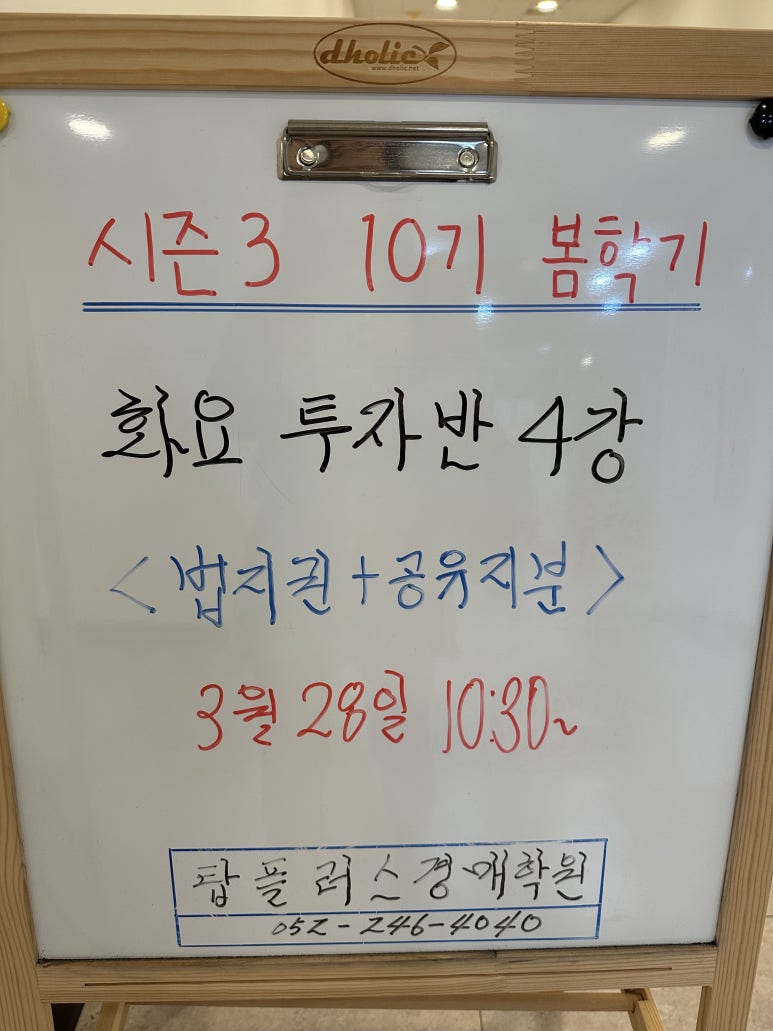 dholic
www.dholic.net
시즌3 10기 봄학기
화요 투자반 4강
<법지권+공유지분>
3월 28일 10:30~
탑플러스경매학원
052-246-4040